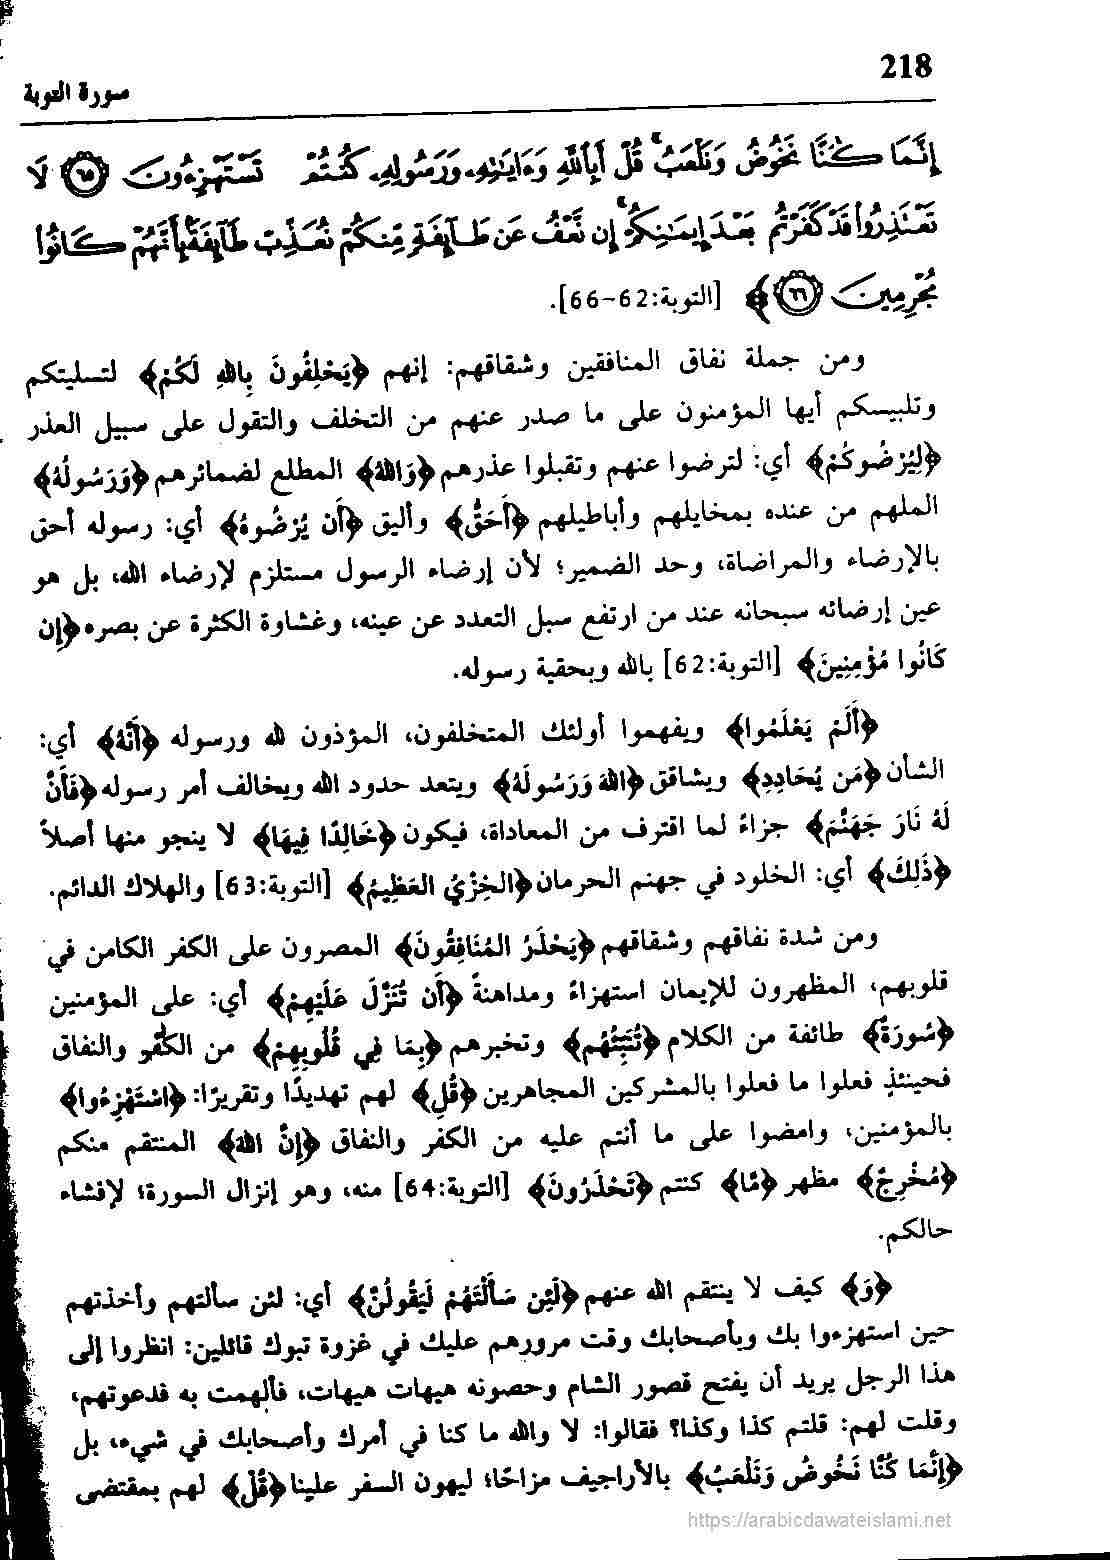 218
سورة التوبة
إِنَّمَا كُنَّا نَخُوضُ وَنَلْعَبُ قُلْ أَبِاللَّهِ وَءَايَٰتِهِۦ وَرَسُولِهِۦ كُنتُمْ تَسْتَهْزِءُونَ ۝٦٥ لَا
تَعْتَذِرُوا قَدْ كَفَرْتُم بَعْدَ إِيمَٰنِكُمْ إِن نَّعْفُ عَن طَآئِفَةٍ مِّنكُمْ نُعَذِّبْ طَآئِفَةً بِأَنَّهُمْ كَانُوا
مُجْرِمِينَ ۝٦٦﴾ [التوبة:62-66].
ومن جملة نفاق المنافقين وشقاقهم: إنهم ﴿يَحْلِفُونَ بِاللهِ لَكُمْ﴾ لتسليتكم
وتلبيسكم أيها المؤمنون على ما صدر عنهم من التخلف والتقول على سبيل العذر
﴿لِيُرْضُوكُمْ﴾ أي: لترضوا عنهم وتقبلوا عذرهم ﴿وَاللهُ﴾ المطلع لضمائرهم ﴿وَرَسُولُهُ﴾
الملهم من عنده بمخايلهم وأباطيلهم ﴿أَحَقُّ﴾ وأليق ﴿أَن يُرْضُوهُ﴾ أي: رسوله أحق
بالإرضاء والمراضاة، وحد الضمير؛ لأن إرضاء الرسول مستلزم لإرضاء الله، بل هو
عين إرضائه سبحانه عند من ارتفع سبل التعدد عن عينه، وغشاوة الكثرة عن بصره ﴿إِن
كَانُوا مُؤْمِنِينَ﴾ [التوبة:62] بالله وبحقية رسوله.
﴿أَلَمْ يَعْلَمُوا﴾ ويفهموا أولئك المتخلفون، المؤذون لله ورسوله ﴿أَنَّهُ﴾ أي:
الشأن ﴿مَن يُحَادِدِ﴾ ويشاقق ﴿اللهَ وَرَسُولَهُ﴾ ويتعد حدود الله ويخالف أمر رسوله ﴿فَأَنَّ
لَهُ نَارَ جَهَنَّمَ﴾ جزاءً لما اقترف من المعاداة، فيكون ﴿خَالِدًا فِيهَا﴾ لا ينجو منها أصلاً
﴿ذَلِكَ﴾ أي: الخلود في جهنم الحرمان ﴿الخِزْيُ العَظِيمُ﴾ [التوبة:63] والهلاك الدائم.
ومن شدة نفاقهم وشقاقهم ﴿يَحْذَرُ المُنَافِقُونَ﴾ المصرون على الكفر الكامن في
قلوبهم، المظهرون للإيمان استهزاءً ومداهنةً ﴿أَن تُنَزَّلَ عَلَيْهِمْ﴾ أي: على المؤمنين
﴿سُورَةٌ﴾ طائفة من الكلام ﴿تُنَبِّئُهُم﴾ وتخبرهم ﴿بِمَا فِي قُلُوبِهِمْ﴾ من الكفر والنفاق
فحينئذٍ فعلوا ما فعلوا بالمشركين المجاهرين ﴿قُلِ﴾ لهم تهديدًا وتقريرًا: ﴿اسْتَهْزِءُوا﴾
بالمؤمنين، وامضوا على ما أنتم عليه من الكفر والنفاق ﴿إِنَّ اللهَ﴾ المنتقم منكم
﴿مُخْرِجٌ﴾ مظهر ﴿مَّا﴾ كنتم ﴿تَحْذَرُونَ﴾ [التوبة:64] منه، وهو إنزال السورة؛ لإفشاء
حالكم.
﴿وَ﴾ كيف لا ينتقم الله عنهم ﴿لَئِن سَأَلْتَهُمْ لَيَقُولُنَّ﴾ أي: لئن سألتهم وأخذتهم
حين استهزءوا بك وبأصحابك وقت مرورهم عليك في غزوة تبوك قائلين: انظروا إلى
هذا الرجل يريد أن يفتح قصور الشام وحصونه هيهات هيهات، فألهمت به فدعوتهم،
وقلت لهم: قلتم كذا وكذا؟ فقالوا: لا والله ما كنا في أمرك وأصحابك في شيء، بل
﴿إِنَّمَا كُنَّا نَخُوضُ وَنَلْعَبُ﴾ بالأراجيف مزاحًا؛ ليهون السفر علينا ﴿قُلْ﴾ لهم بمقتضى
https://arabicdawateislami.net